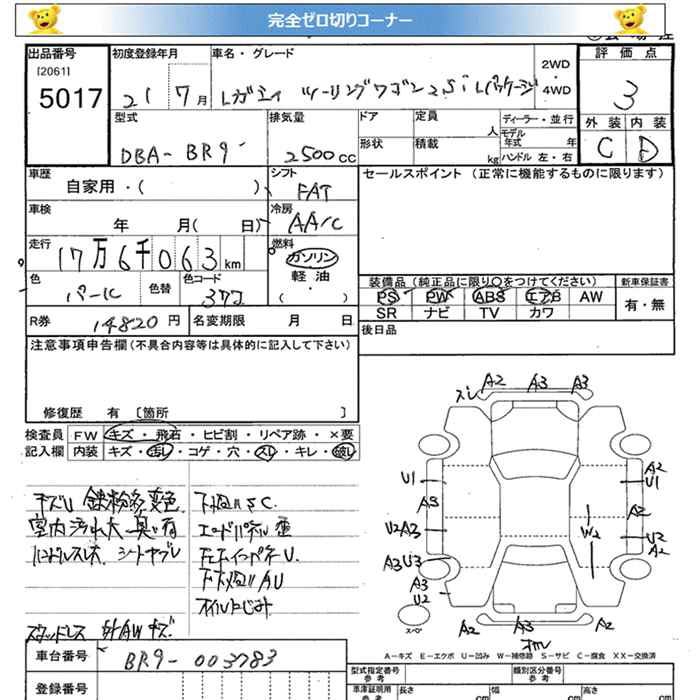 完全ゼロ切りコーナー
出品番号 初度登録年月 車名・グレード 評価点
[2061]
5017
21 7月 レガシィ ツーリングワゴン 2.5i Lパッケージ 2WD・4WD 3
型式 排気量 ドア 定員 人 ディーラー・並行 外装 内装
形状 積載 kg モデル年式 年
ハンドル 左・右
DBA-BR9 2500cc C D
車歴 シフト セールスポイント(正常に機能するものに限ります)
自家用・( ) FAT
車検 冷房
年 月( 日) AA/C
走行 燃料
17万6千063km ガソリン
色 色替 色コード 軽油 装備品(純正品に限り○をつけてください) 新車保証書
パール 37J ( ・ ) PS PW ABS エアB AW 有・無
SR ナビ TV カワ
R券 14820円 名変期限 月 日 後日品
注意事項申告欄(不具合内容等は具体的に記入して下さい)
修復歴 有 〔箇所 〕
検査員 FW キズ・飛石・ヒビ割・リペア跡・×要
記入欄 内装 キズ・汚レ・コゲ・穴・スレ・キレ・破レ
キズU 鉄粉多 変色
室内汚れ大 臭い有
ハンドルスレ大 シートヤブレ
下廻りSC
エンドパネル歪
下廻りAU
オイルにじみ
スタッドレス 外AWキズ
スレ A2 A3 A3
U1 A2
U1
A3 A2
U2A3 W2 U2
A2
A3U3
A3
U2
スペア A2 A3 A2
A-キズ E-エクボ U-凹み W-補修跡 S-サビ C-腐食 XX-交換済
車台番号 BR9-003783
型式指定番号 参考 類別区分番号 参考
登録番号 車庫証明用 参考 長さ cm 幅 cm 高さ cm